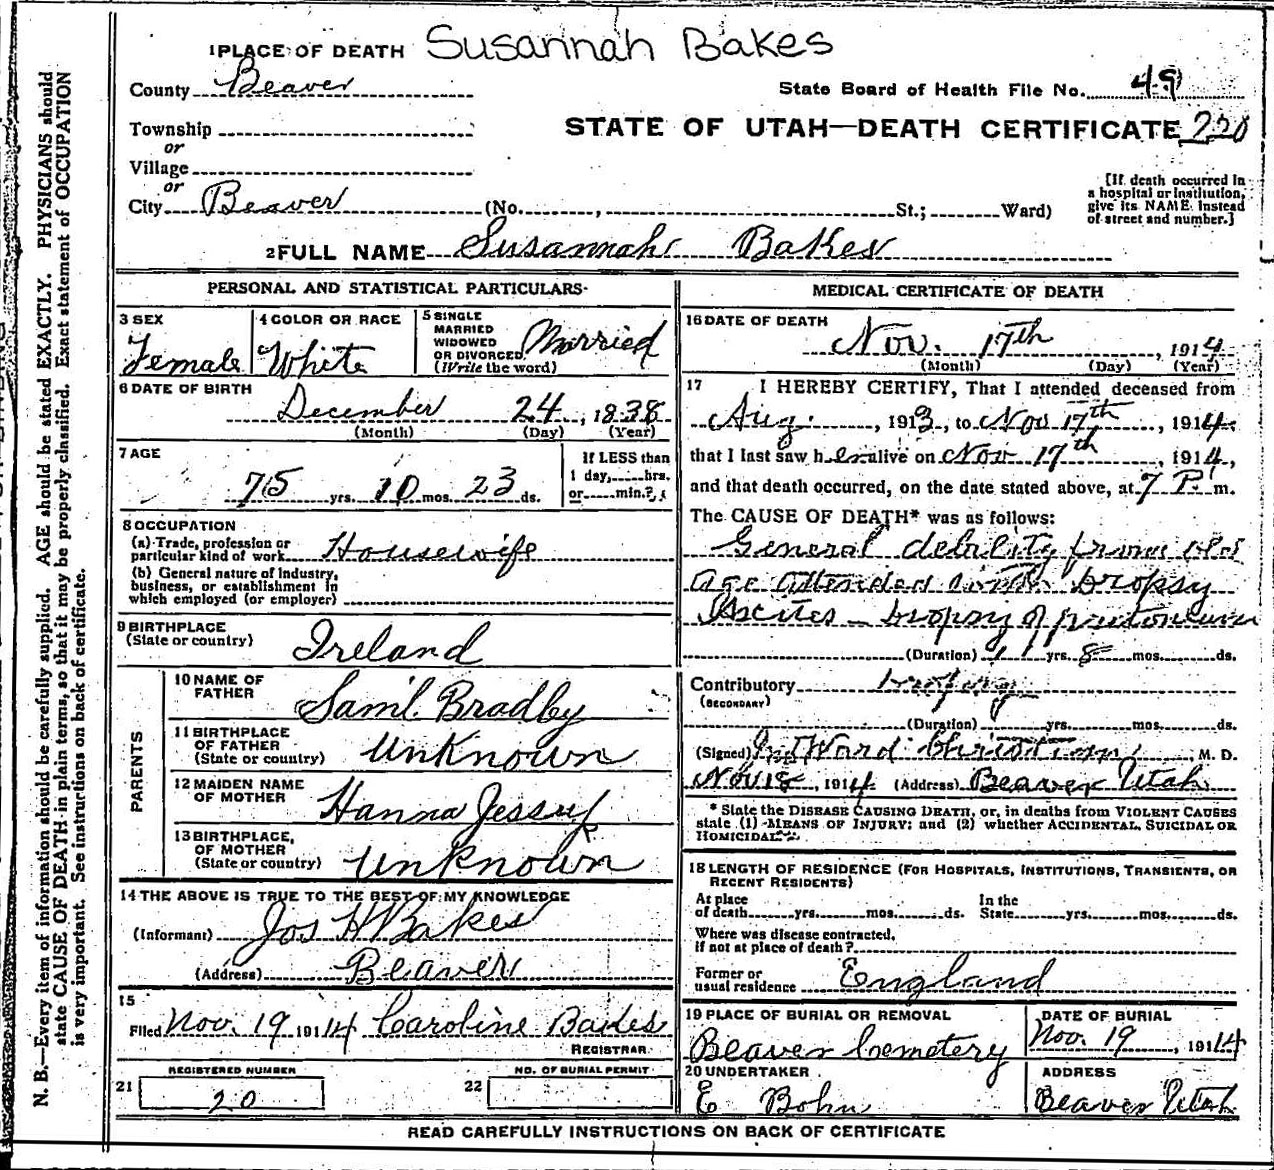 1 PLACE OF DEATH Susannah Bakes
County Beaver
State Board of Health File No. 49
Township
STATE OF UTAH—DEATH CERTIFICATE 220
or
Village
or
City Beaver (No. , St.; Ward)
[If death occurred in
a hospital or institution,
give its NAME instead
of street and number.]
2 FULL NAME Susannah Bakes
PERSONAL AND STATISTICAL PARTICULARS
3 SEX
Female
4 COLOR OR RACE
White
5 SINGLE
MARRIED
WIDOWED
OR DIVORCED
(Write the word)
Married
6 DATE OF BIRTH
December 24, 1838
(Month) (Day) (Year)
7 AGE
75 yrs. 10 mos. 23 ds.
If LESS than
1 day, hrs.
or min.?
8 OCCUPATION
(a) Trade, profession or
particular kind of work Housewife
(b) General nature of industry,
business, or establishment in
which employed (or employer)
9 BIRTHPLACE
(State or country) Ireland
PARENTS
10 NAME OF
FATHER Saml. Bradby
11 BIRTHPLACE
OF FATHER
(State or country) Unknown
12 MAIDEN NAME
OF MOTHER Hanna Jessup
13 BIRTHPLACE
OF MOTHER
(State or country) Unknown
14 THE ABOVE IS TRUE TO THE BEST OF MY KNOWLEDGE
(Informant) Jos H Bakes
(Address) Beaver
15
Filed Nov. 19 1914 Caroline Bakes
REGISTRAR
REGISTERED NUMBER
21 20
NO. OF BURIAL PERMIT
22
MEDICAL CERTIFICATE OF DEATH
16 DATE OF DEATH
Nov. 17th, 1914
(Month) (Day) (Year)
17 I HEREBY CERTIFY, That I attended deceased from
Aug. , 1913, to Nov 17th, 1914
that I last saw her alive on Nov 17th, 1914,
and that death occurred, on the date stated above, at 7 P. m.
The CAUSE OF DEATH* was as follows:
General debility from old
age attended with dropsy
Ascites – dropsy of peritoneum
(Duration) 1 yrs. 8 mos. ds.
Contributory dropsy
(SECONDARY)
(Duration) yrs. mos. ds.
(Signed) Ward Christian, M. D.
Nov 18, 1914 (Address) Beaver Utah
* State the DISEASE CAUSING DEATH, or, in deaths from VIOLENT CAUSES
state (1) MEANS OF INJURY; and (2) whether ACCIDENTAL, SUICIDAL OR
HOMICIDAL.
18 LENGTH OF RESIDENCE (FOR HOSPITALS, INSTITUTIONS, TRANSIENTS, OR
RECENT RESIDENTS)
At place
of death yrs. mos. ds.
In the
State yrs. mos. ds.
Where was disease contracted,
if not at place of death?
Former or
usual residence England
19 PLACE OF BURIAL OR REMOVAL
Beaver Cemetery
DATE OF BURIAL
Nov. 19, 1914
20 UNDERTAKER
E Bohn
ADDRESS
Beaver Utah
READ CAREFULLY INSTRUCTIONS ON BACK OF CERTIFICATE
N. B.—Every item of information should be carefully supplied. AGE should be stated EXACTLY. PHYSICIANS should
state CAUSE OF DEATH in plain terms, so that it may be properly classified. Exact statement of OCCUPATION
is very important. See instructions on back of certificate.